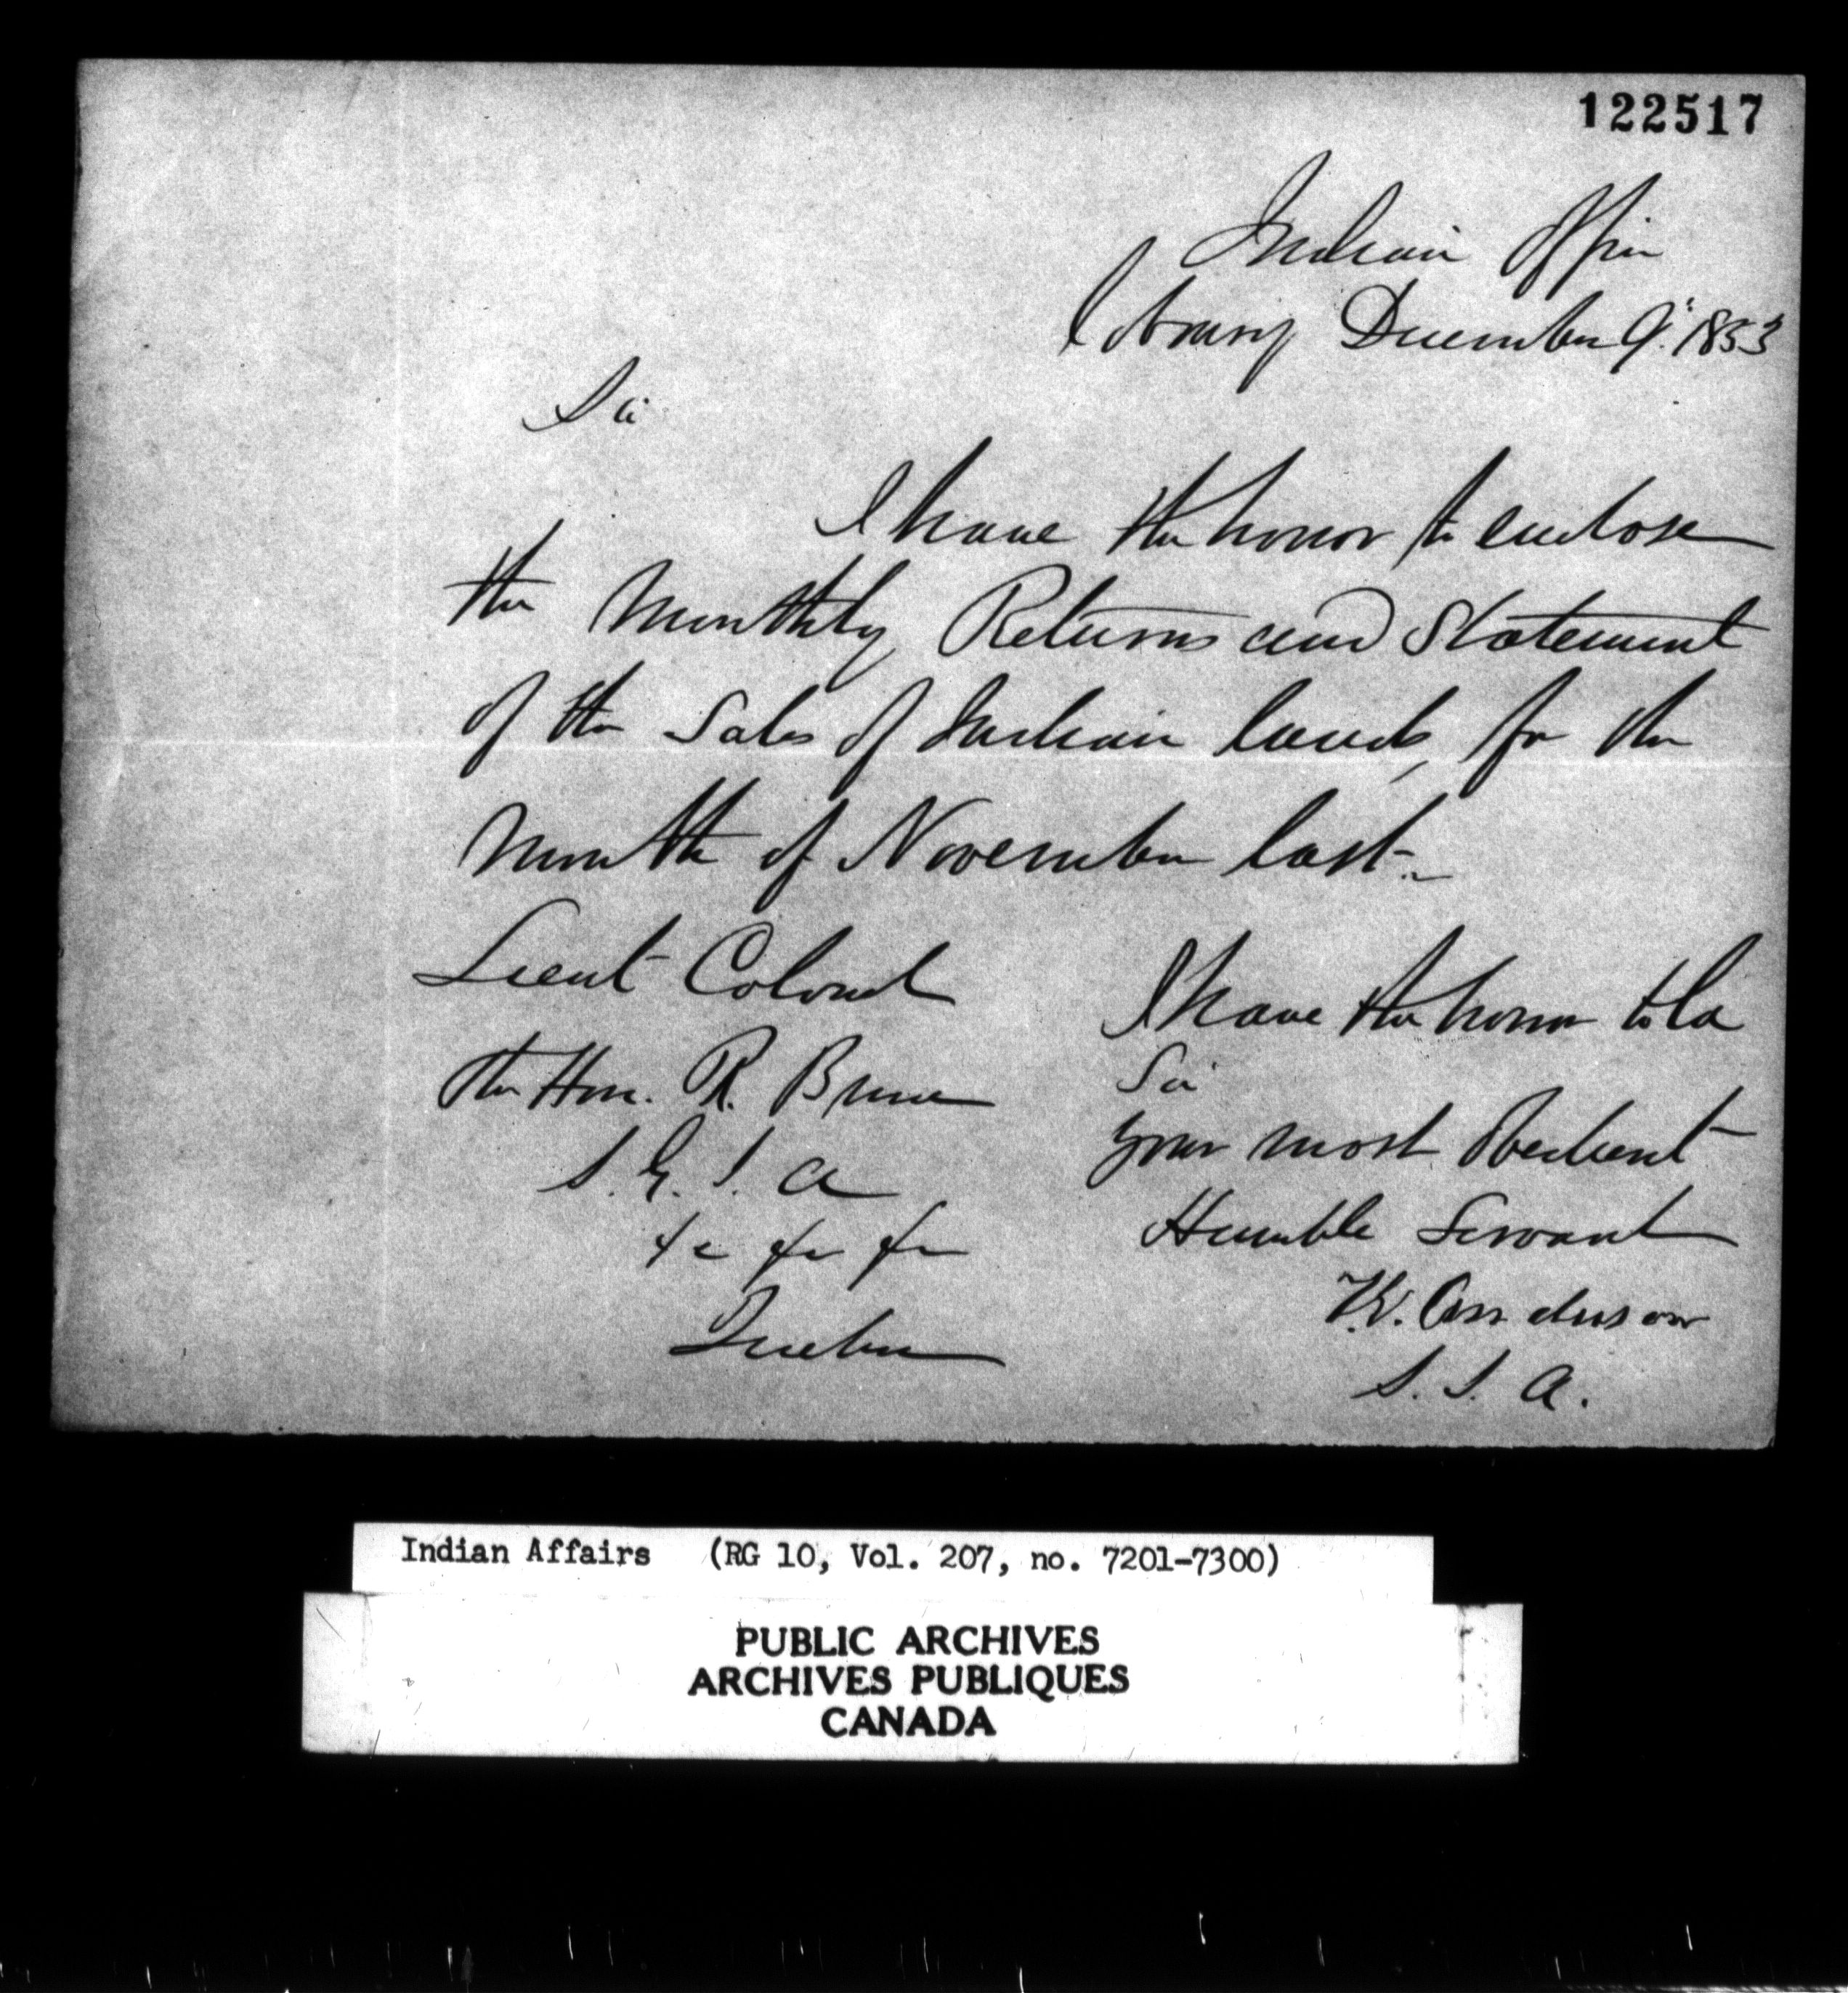 122517
Indian Office
Cobourg December 9th 1853
Sir
I have the honor to enclose
the Monthly Returns and Statement
of the Sales of Indian lands, for the
Month of November last.
Lieut Colonel
The Hon. R. Bruce
S. G. I. A
&c &c &c
Quebec
I have the honor to be
Sir
your most Obedient
Humble Servant
T.G. Anderson
S. I. A.
Indian Affairs (RG 10, Vol. 207, no. 7201-7300)
PUBLIC ARCHIVES
ARCHIVES PUBLIQUES
CANADA